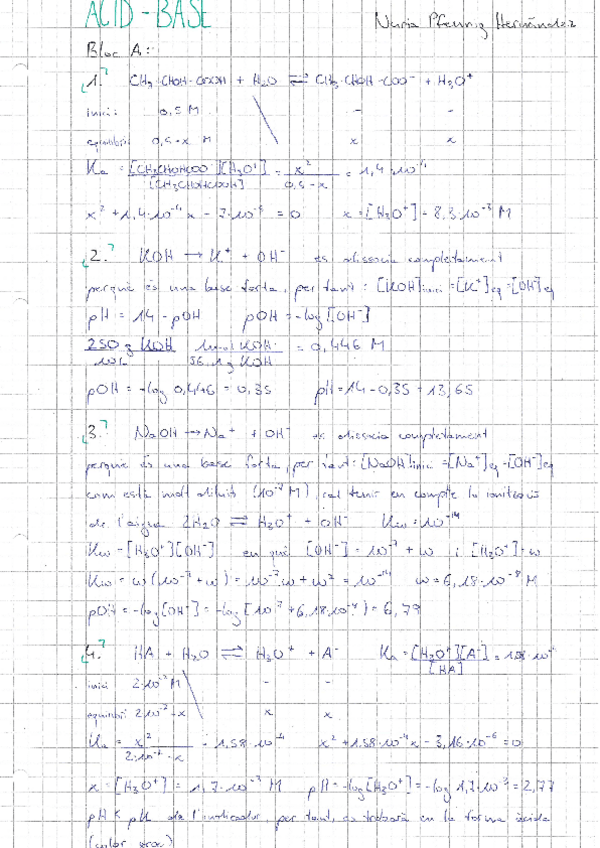 ACID-BASE
Nuria Pfennig Hernández
Bloc A:
1. CH₃-CHOH-COOH + H₂O ⇌ CH₃-CHOH-COO⁻ + H₃O⁺
inici: 0,5 M - -
equilibri 0,5-x M x x
Ka = [CH₃CHOHCOO⁻][H₃O⁺] / [CH₃CHOHCOOH] = x² / 0,5-x = 1,4·10⁻⁴
x² + 1,4·10⁻⁴x - 7·10⁻⁵ = 0 x = [H₃O⁺] = 8,3·10⁻³ M
2. KOH → K⁺ + OH⁻ es dissocia completament
perquè és una base forta, per tant: [KOH]inici = [K⁺]eq = [OH⁻]eq
pH = 14 - pOH pOH = -log [OH⁻]
250 g KOH / 10 L · 1 mol KOH / 56,1 g KOH = 0,446 M
pOH = -log 0,446 = 0,35 pH = 14 - 0,35 = 13,65
3. NaOH → Na⁺ + OH⁻ es dissocia completament
perquè és una base forta, per tant: [NaOH]inici = [Na⁺]eq = [OH⁻]eq
com està molt diluït (10⁻⁷ M), cal tenir en compte la ionització
de l'aigua 2H₂O ⇌ H₃O⁺ + OH⁻ Kw = 10⁻¹⁴
Kw = [H₃O⁺][OH⁻] en què [OH⁻] = 10⁻⁷ + w i [H₃O⁺] = w
Kw = w(10⁻⁷ + w) = 10⁻⁷w + w² = 10⁻¹⁴ w = 6,18·10⁻⁸ M
pOH = -log [OH⁻] = -log [10⁻⁷ + 6,18·10⁻⁸] = 6,79
4. HA + H₂O ⇌ H₃O⁺ + A⁻ Ka = [H₃O⁺][A⁻] / [HA] = 1,58·10⁻⁴
inici 2·10⁻² M - -
equilibri 2·10⁻² - x x x
Ka = x² / 2·10⁻² - x = 1,58·10⁻⁴ x² + 1,58·10⁻⁴x - 3,16·10⁻⁶ = 0
x = [H₃O⁺] = 1,7·10⁻³ M pH = -log [H₃O⁺] = -log 1,7·10⁻³ = 2,77
pH < pK de l'indicador, per tant, es trobarà en la forma àcida
(color